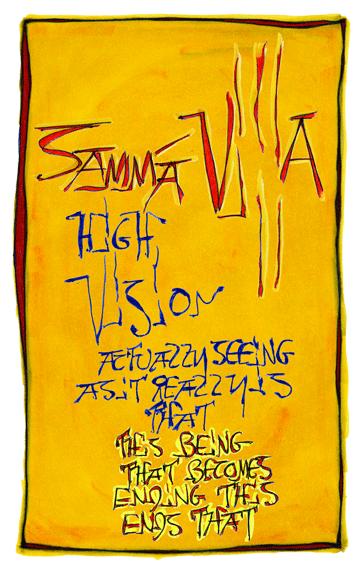 SAMMÁ
HIGH
VISION
ACTUALLY SEEING
AS IT REALLY IS
THAT
THIS BEING
THAT BECOMES
ENDING THIS
ENDS THAT